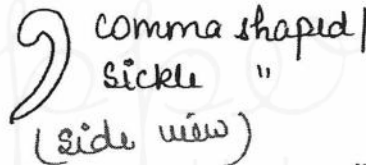 comma shaped/
Sickle "
(side view)